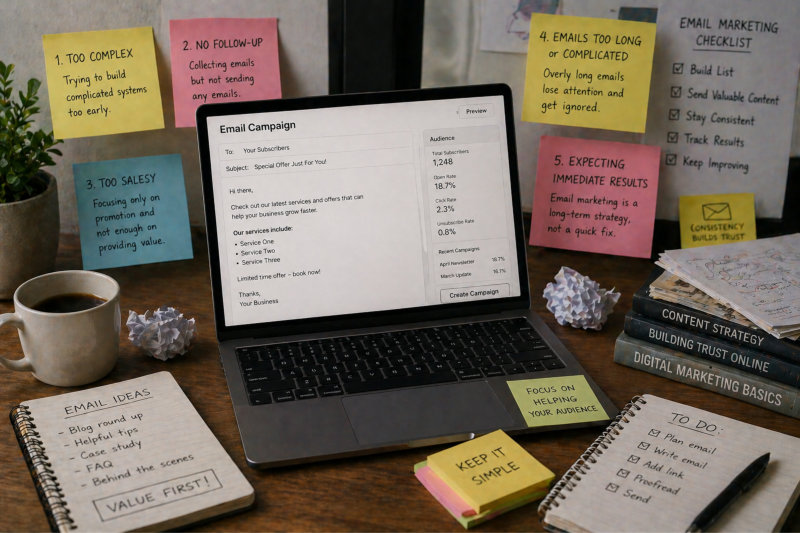 1. TOO COMPLEX
Trying to build
complicated systems
too early.
2. NO FOLLOW-UP
Collecting emails
but not sending
any emails.
3. TOO SALESY
Focusing only on
promotion and
not enough on
providing value.
4. EMAILS TOO LONG
OR COMPLICATED
Overly long emails
lose attention and
get ignored.
5. EXPECTING
IMMEDIATE RESULTS
Email marketing is a
long-term strategy,
not a quick fix.
EMAIL MARKETING
CHECKLIST
Build List
Send Valuable Content
Stay Consistent
Track Results
Keep Improving
CONSISTENCY
BUILDS TRUST
Email Campaign
Preview
To: Your Subscribers
Subject: Special Offer Just For You!
Hi there,
Check out our latest services and offers that can
help your business grow faster.
Our services include:
• Service One
• Service Two
• Service Three
Limited time offer - book now!
Thanks,
Your Business
Audience
Total Subscribers
1,248
Open Rate
18.7%
Click Rate
2.3%
Unsubscribe Rate
0.8%
Recent Campaigns
April Newsletter 18.7%
March Update 16.1%
Create Campaign
CONTENT STRATEGY
BUILDING TRUST ONLINE
DIGITAL MARKETING BASICS
FOCUS ON
HELPING
YOUR AUDIENCE
KEEP IT
SIMPLE
EMAIL IDEAS
- Blog round up
- Helpful tips
- Case study
- FAQ
- Behind the scenes
VALUE FIRST!
TO DO:
Plan email
Write email
Add link
Proofread
Send